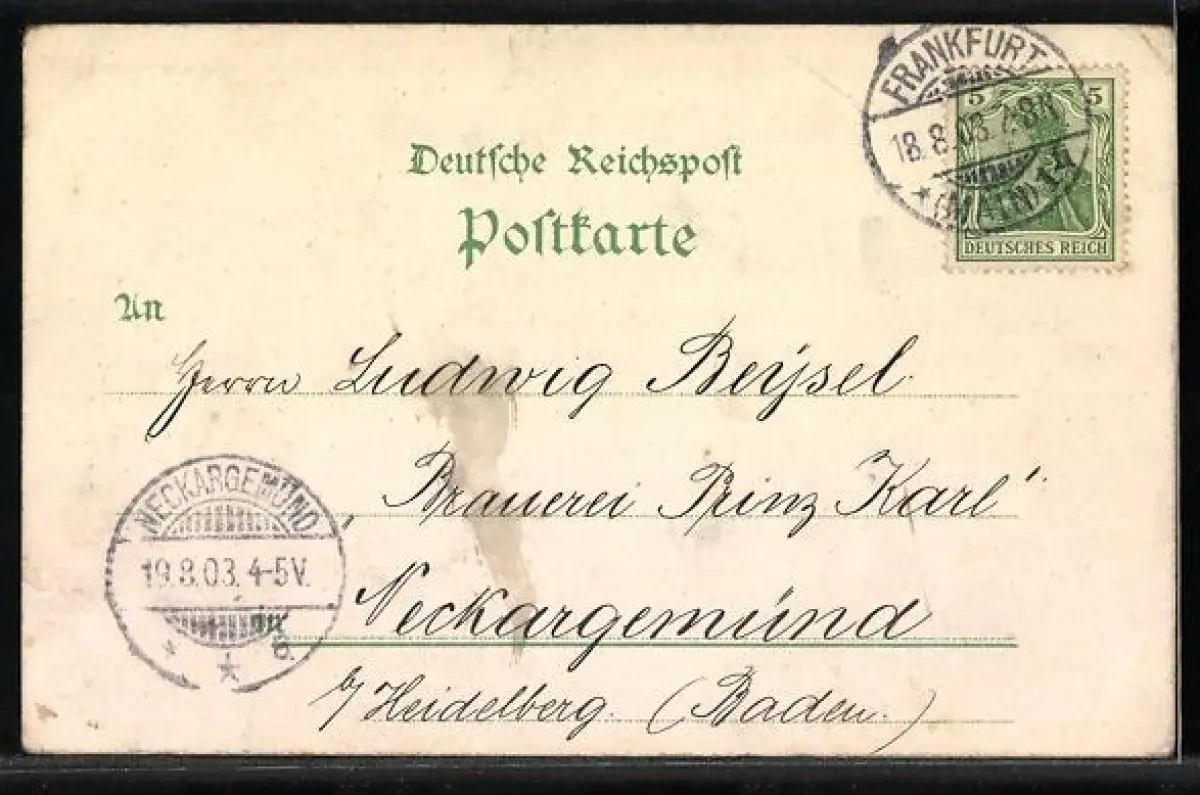 FRANKFURT
18.8.03.7-8N.
* (MAIN)
5 5
DEUTSCHES REICH
Deutsche Reichspost
Postkarte
An
Herrn Ludwig Beÿsel.
"Brauerei Prinz Karl"
in Neckargemünd
b/ Heidelberg. (Baden.)
NECKARGEMÜND
19.8.03. 4-5V.
* * a.